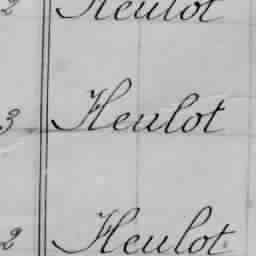 2 Heulot
3 Heulot
2 Heulot